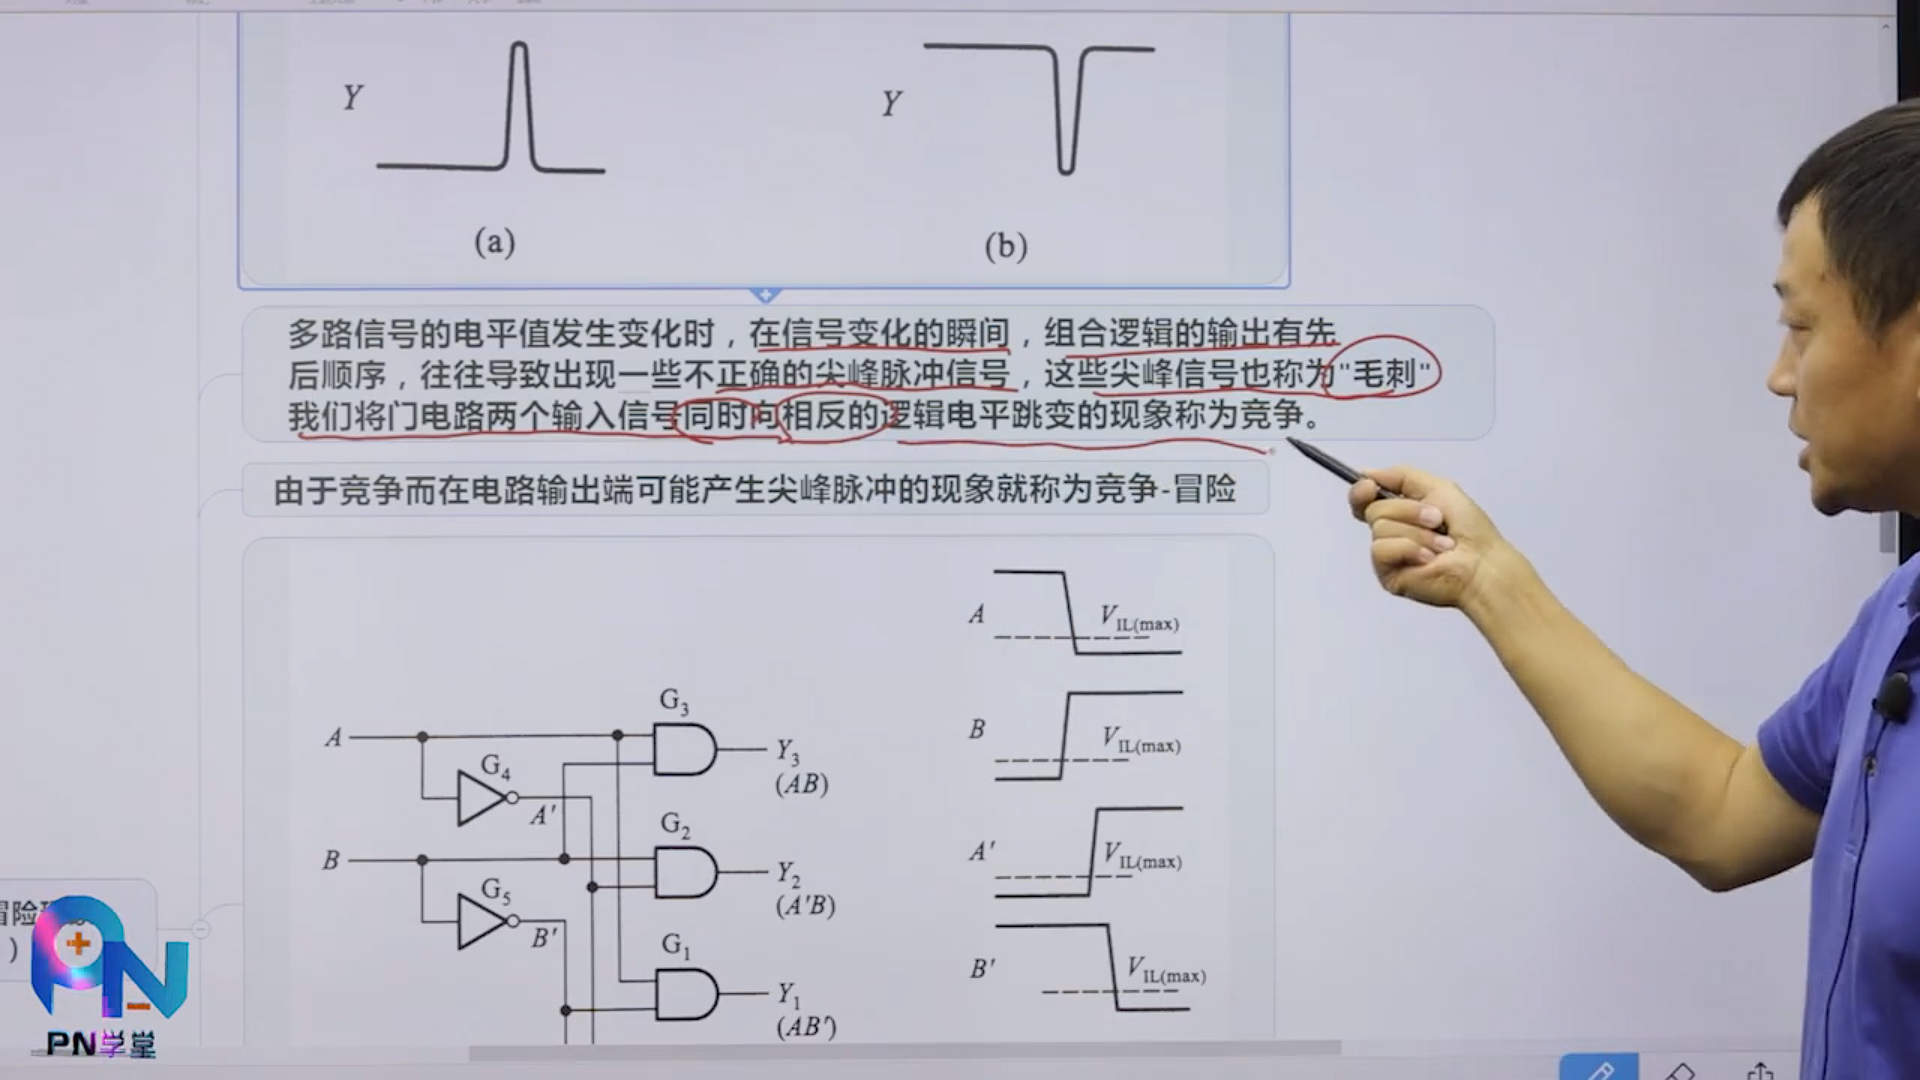 Y
Y
(a)
(b)
多路信号的电平值发生变化时，在信号变化的瞬间，组合逻辑的输出有先
后顺序，往往导致出现一些不正确的尖峰脉冲信号，这些尖峰信号也称为"毛刺"
我们将门电路两个输入信号同时向相反的逻辑电平跳变的现象称为竞争。
由于竞争而在电路输出端可能产生尖峰脉冲的现象就称为竞争-冒险
A
G4
A'
B
G5
B'
G3
Y3
(AB)
G2
Y2
(A'B)
G1
Y1
(AB')
A
VIL(max)
B
VIL(max)
A'
VIL(max)
B'
VIL(max)
冒险
)
PN
PN学堂